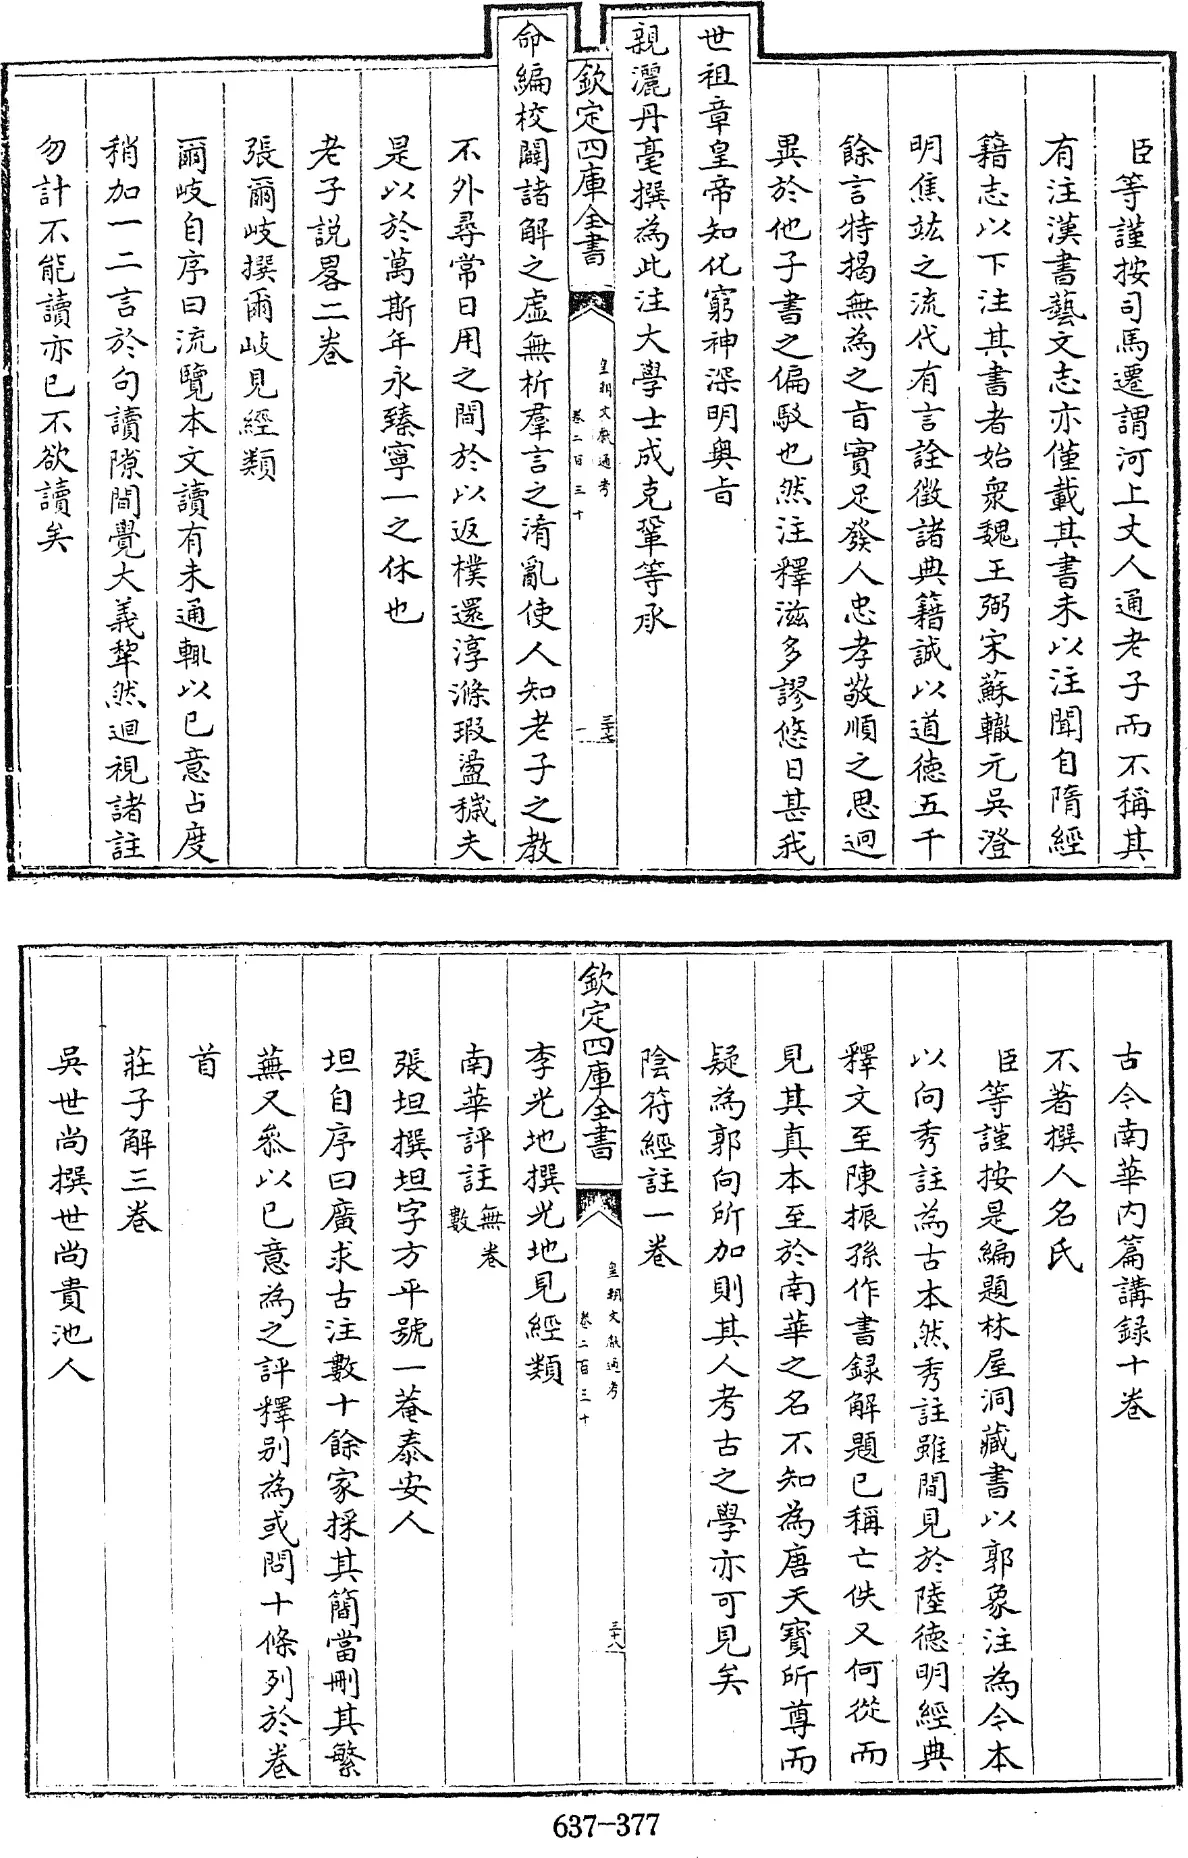 臣等謹按司馬遷謂河上丈人通老子而不稱其
有注漢書藝文志亦僅載其書未以注聞自隋經
籍志以下注其書者始衆魏王弼宋蘇轍元吳澄
明焦竑之流代有言詮徵諸典籍誠以道德五千
餘言特揭無為之旨實足發人忠孝敬順之思迥
異於他子書之偏駁也然注釋滋多謬悠日甚我
世祖章皇帝知化窮神深明奧旨
親灑丹毫撰為此注大學士成克鞏等承
欽定四庫全書
皇朝文獻通考
卷二百三十
三十七
命編校闢諸解之虛無析羣言之淆亂使人知老子之教
不外尋常日用之間於以返樸還淳滌瑕盪穢夫
是以於萬斯年永臻寧一之休也
老子說畧二卷
張爾岐撰爾岐見經類
爾岐自序曰流覽本文讀有未通輒以已意占度
稍加一二言於句讀隙間覺大義犂然迴視諸註
勿計不能讀亦已不欲讀矣
古今南華内篇講録十卷
不著撰人名氏
臣等謹按是編題林屋洞藏書以郭象注為今本
以向秀註為古本然秀註雖間見於陸德明經典
釋文至陳振孫作書録解題已稱亡佚又何從而
見其真本至於南華之名不知為唐天寳所尊而
疑為郭向所加則其人考古之學亦可見矣
陰符經註一卷
欽定四庫全書
皇朝文獻通考
卷二百三十
三十八
李光地撰光地見經類
南華評註無卷數
張坦撰坦字方平號一菴泰安人
坦自序曰廣求古注數十餘家採其簡當刪其繁
蕪又叅以已意為之評釋别為或問十條列於卷
首
莊子解三卷
吳世尚撰世尚貴池人
637-377